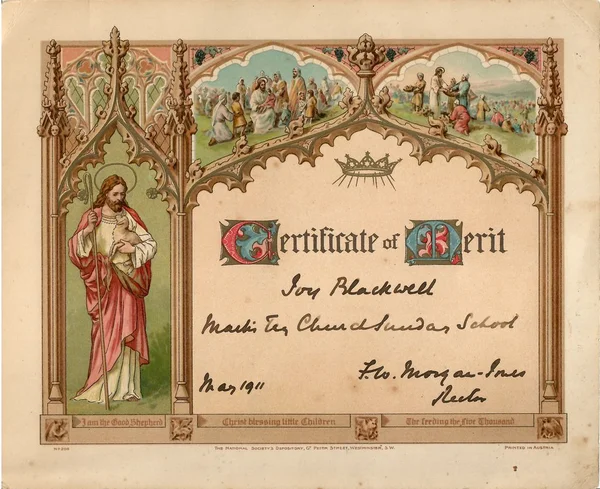 Certificate of Merit
Ivy Blackwell
Marks Tey Church Sunday School
May 1911
F.W. Morgan-Jones
Rector
I am the Good Shepherd
Christ blessing little Children
The feeding the Five Thousand
The National Society's Depository, 19 Peter Street, Westminster, S.W.
Printed in Austria